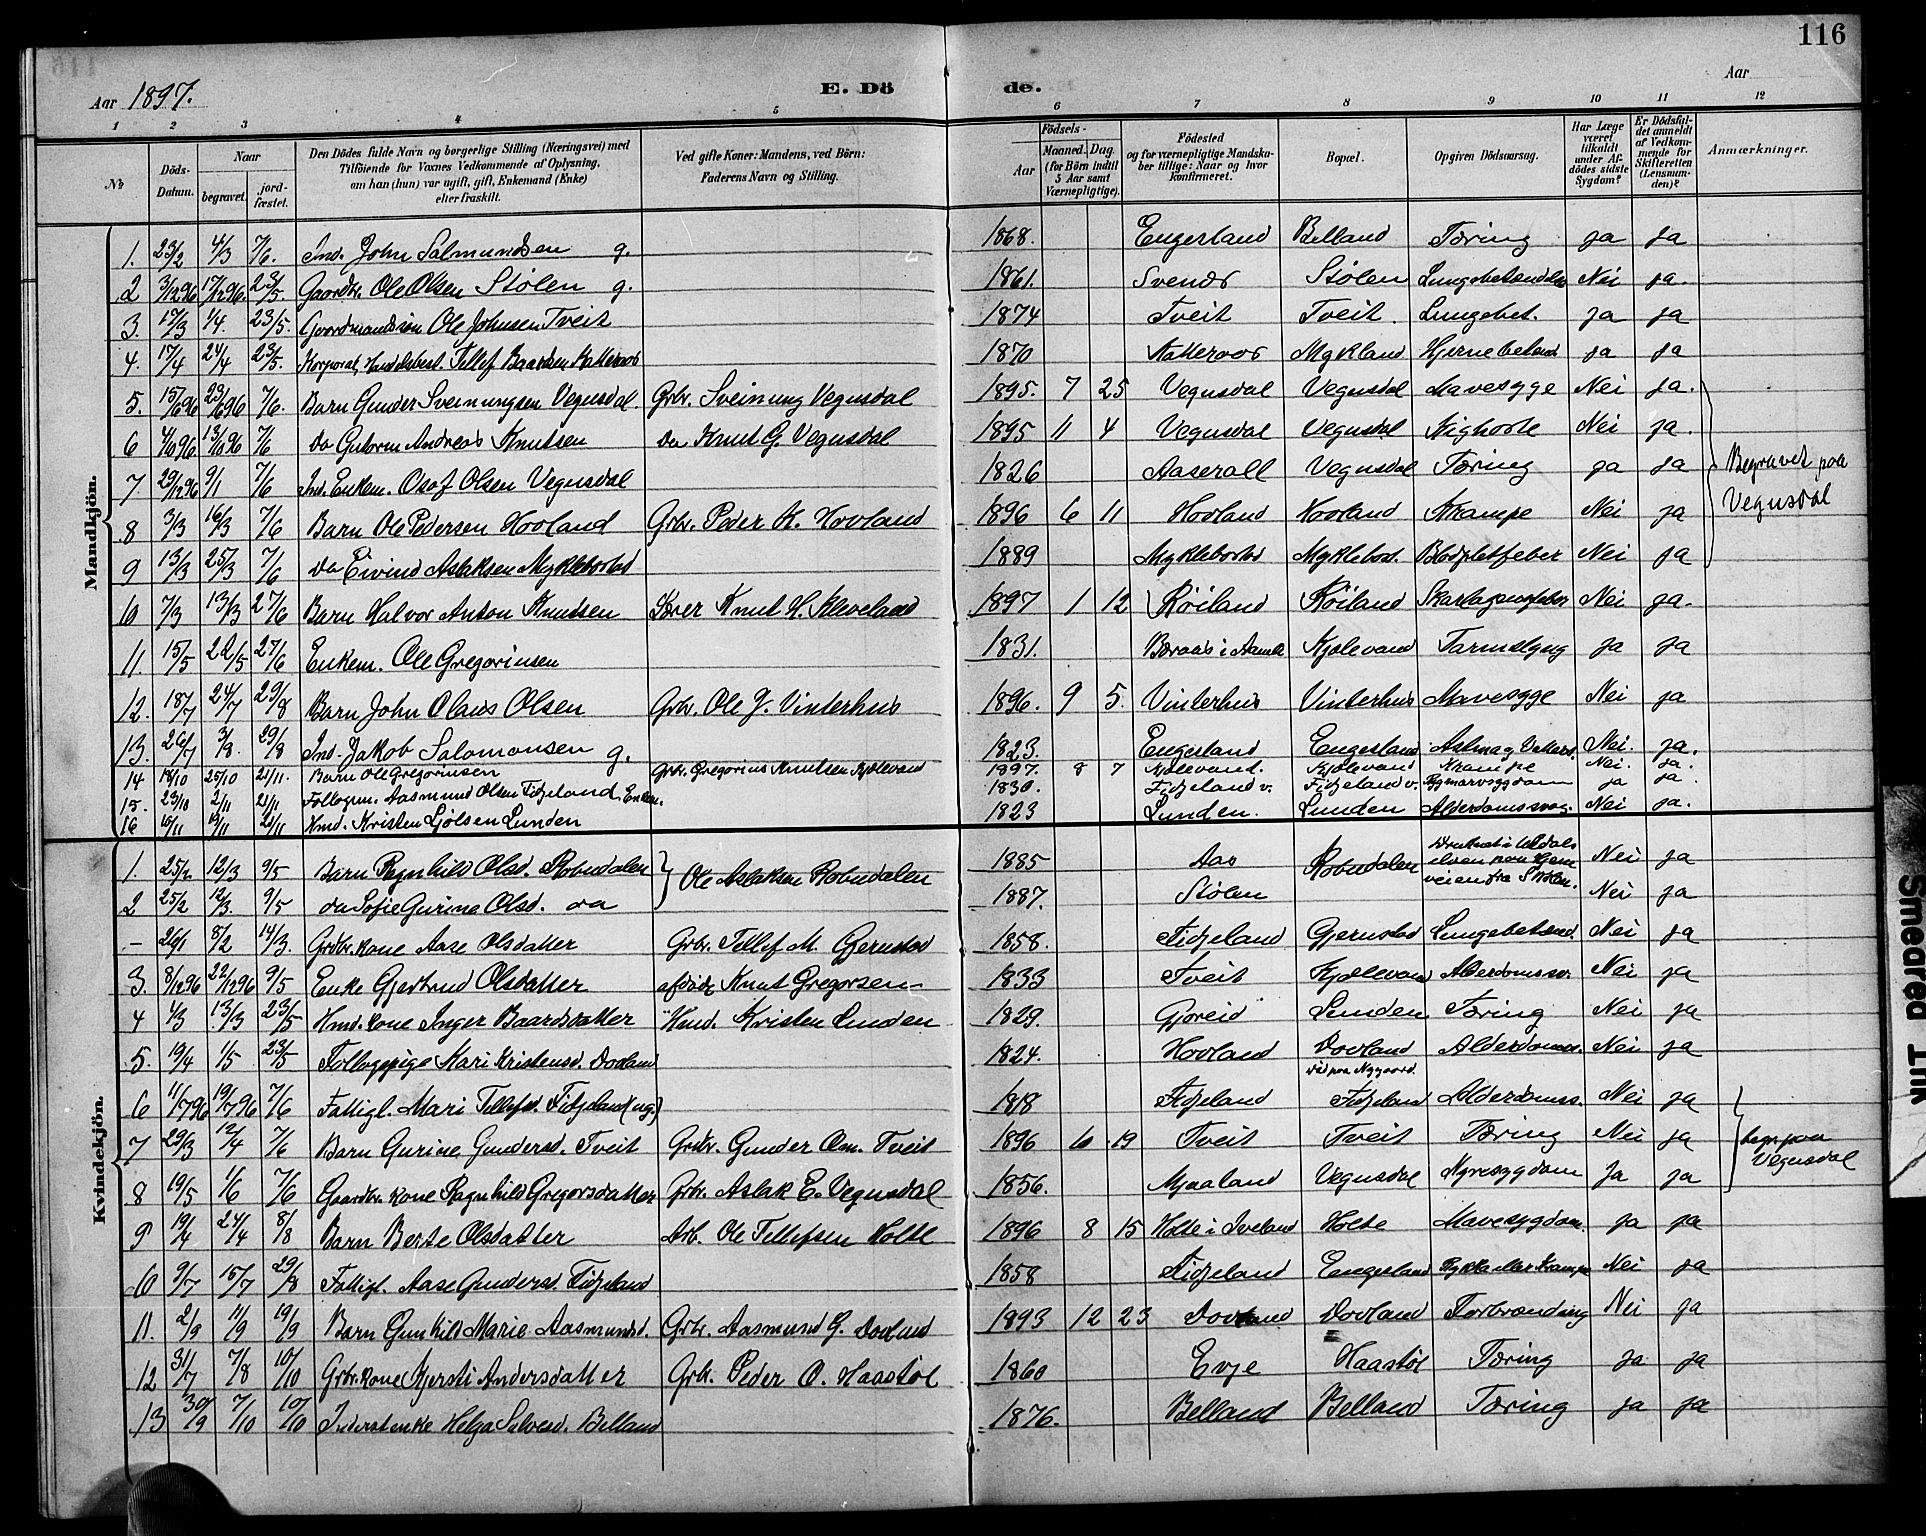 116
Aar 1897. E. Dö de. Aar
1 2 3 4 5 6 7 8 9 10 11 12
No Döds-Datum. Naar begravet. jordfæstet. Den Dödes fulde Navn og borgerlige Stilling (Næringsvei) med Tilföiende for Voxnes Vedkommende af Oplysning, om han (hun) var ugift, gift, Enkemand (Enke) eller fraskilt. Ved gifte Koner: Mandens, ved Börn: Faderens Navn og Stilling. Födsels- Aar Maaned. Dag. (for Börn indtil 5 Aar samt Værnepligtige). Födested og for værnepligtige Mandskaber tillige: Naar og hvor konfirmeret. Bopæl. Opgiven Dödsaarsag. Har Læge været tilkaldt under Afdödes sidste Sygdom? Er Dödsfaldet anmeldt af Vedkommende for Skifteretten (Lensmanden)? Anmærkninger.
Mandkjön.
1. 23/2 4/3 7/6. Ind. John Salmundsen g. 1868. Engesland Belland Tæring ja ja
2 3/12 96 17/12 96. 23/5. Gaardbr. Ole Olsen Stölen g. 1861. Svenør Stølen Lungebetændelse Nei ja.
3. 17/3 1/4. 23/5. Gaardmandssön Ole Johnsen Tveit 1874 Tveit Tveit. Lungebet. ja ja
4. 17/4 24/4 23/5. Korporal, Handelsbest. Tellef Baardsen Katteraas 1870 Katteraas Mykland Hjernebetænd ja ja
5. 15/6 96 23/6 96 7/6. Barn Gunder Sveinungsen Vegusdal. Grbr. Sveinung Vegusdal 1895. 7 25 Vegusdal Vegusdal Mavesyge Nei ja.
6 4/10 96 13/10 96 7/6 do Guttorm Andreas Knutsen do Knut G. Vegusdal 1895 11 4 Vegusdal Vegusdal Kighoste Nei ja.
7 29/12 96 9/1 7/6 Ind. Enkem. Osuf Olsen Vegusdal 1826 Aaserall Vegusdal Tæring ja ja Begravet paa Vegusdal
8 3/3 16/3 7/6 Barn Ole Pedersen Hovland Grbr. Peder K. Hovland 1896 6 11 Hovland Hovland Krampe Nei ja
9 13/3 25/3 7/6 do Eivind Aslaksen Myklebostad 1889 Myklebostad Myklebost. Blodpletfeber Nei ja
10 7/3 13/3 27/6 Barn Halvor Anton Knutsen Lærer Knut H. Kleveland 1897 1 12 Røiland Røiland Skarlagensfeber Nei ja.
11. 15/5 22/5 27/6 Enkem. Ole Gregoriusen 1831. Boraas i Aamli Kjølevand Tarmslyng ja ja
12. 18/7 24/7 29/8 Barn John Olaus Olsen Grbr. Ole J. Vinterhus 1896. 9 5. Vinterhus Vinterhus Mavesyge Nei ja
13. 26/7 3/8. 29/8 Ind. Jakob Salomonsen g. 1823. Engesland Engesland Astma og Vattersot Nei. ja.
14 18/10 25/10 21/11. Barn Ole Gregoriusen Grbr. Gregorius Knutsen Kjølevand 1897. 8 7 Kjølevand. Kjølevand Krampe Nei. ja.
15. 23/10 2/11 21/11 Follogm. Aasmund Olsen Fidjeland, Enkem. 1830. Fidjeland v. Fidjeland v. Rygmarvsygdom ja ja
16 15/11 19/11 21/11 Hmd. Kristen Ljølsen Lunden 1823 Lunden. Lunden Alderdomssvag. Nei ja.
Kvindekjön.
1. 25/2 12/3 9/5 Barn Ragnhild Olsd. Robudalen Ole Aslaksen Robudalen 1885 Aas Robudalen Druknet i Uldalselven paa Hjemveien fra Skolen. Nei ja
2 25/2 12/3. 9/5 do Sofie Gurine Olsd. do 1887. Stølen Nei ja
– 26/1 8/2 14/3. Grdbr. kone Aase Olsdatter Grbr. Tellef M. Gjerustad 1858. Fidjeland Gjerustad Lungebetænd. Nei ja
3. 8/12 96 22/12 96 9/5 Enke Gjertrud Olsdatter afdøde Knut Gregorsen 1833 Tveit Kjølevand Alderdomssv. Nei ja
4 4/3 13/3 23/5 Hmd. kone Inger Baardsdatter Hmd. Kristen Lunden 1829. Gjøreid Lunden Tæring Nei ja
5. 19/4 1/5 23/5 Follogspige Kari Kristensd. Dovland 1824. Hovland Dovland Død paa Nygaard. Alderdomss. Nei ja
6 11/7 96 19/7 96 7/6 Fattigl. Mari Tellefsd. Fidjeland (ug.) 1818 Fidjeland Fidjeland Alderdomss. Nei ja
7 29/3 12/4 7/6 Barn Gurine Gundersd. Tveit Grdbr. Gunder Osm. Tveit 1896 6 19 Tveit Tveit Tæring Nei ja begr. paa Vegusdal
8 19/5 1/6 7/6 Gaardbr. kone Ragnhild Gregorsdatter Grbr. Aslak E. Vegusdal 1856. Mjaaland Vegusdal Nyresygdom Ja ja
9 19/4 24/4 8/8 Barn Berte Olsdatter Arb. Ole Tellefsen Holte 1896 8 15 Holte i Iveland Holte Mavesygdom ja ja
10 9/7 15/7 29/8 Fattigl. Aase Gundersd. Fidjeland 1858 Fidjeland Engesland Rykka eller Krampe Nei ja
11. 2/9 11/9 19/9 Barn Gunhild Marie Aasmundsd. Grbr. Aasmund G. Dovland 1893 12 23 Dovland Dovland Forbrænding Nei ja
12 31/7 7/8 10/10 Grbr. kone Kjersti Andersdatter Grbr. Peder O. Haastøl 1860 Evje Haastøl Tæring ja ja
13 30/9 7/10 10/10 Inderstenke Helga Salvesd. Belland 1876. Belland Belland Tæring ja ja
Smeared Ink